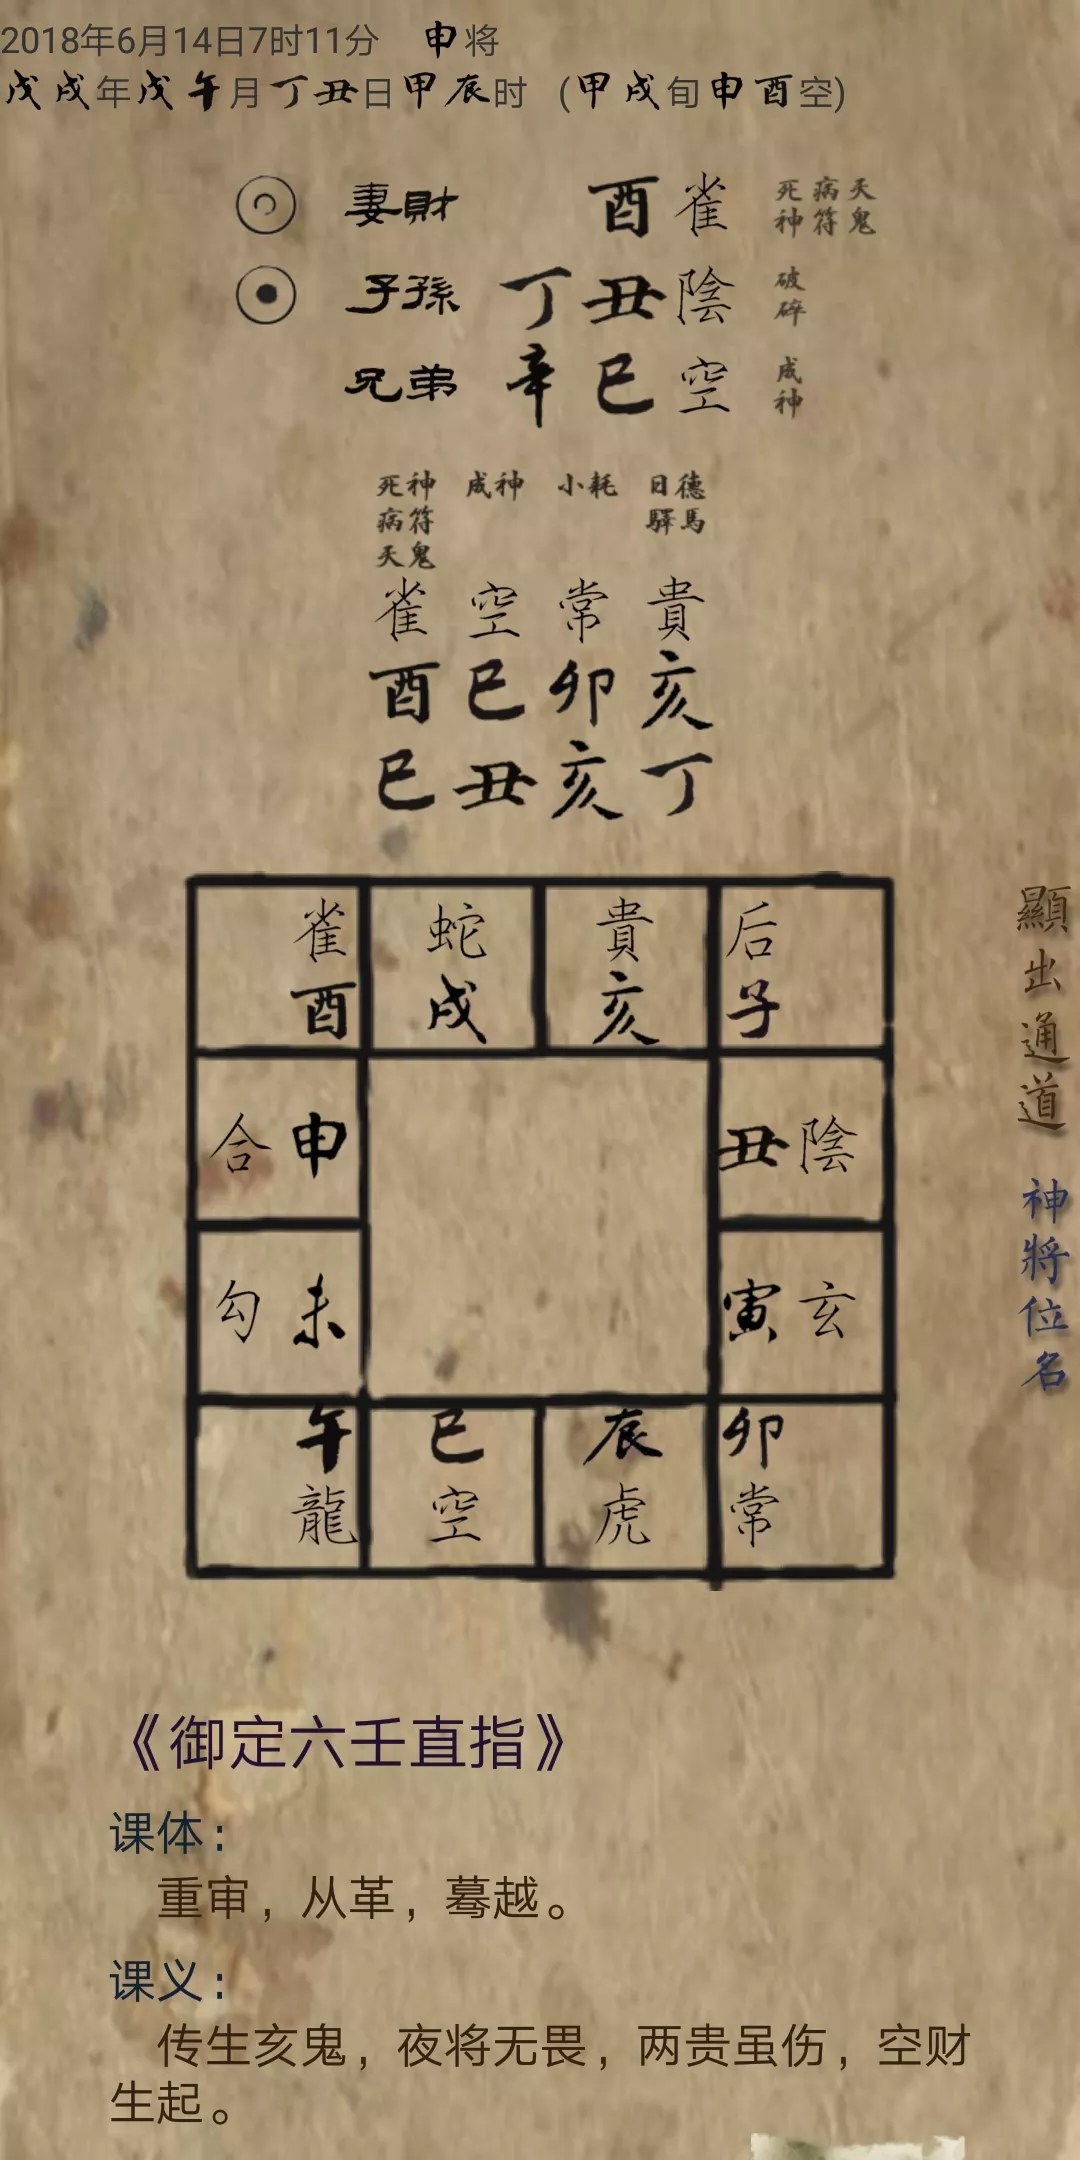 2018年6月14日7时11分 申将
戊戌年戊午月丁丑日甲辰时 (甲戌旬申酉空)
妻財 酉 雀 死神 病符 天鬼
子孫 丁 丑 陰 破碎
兄弟 辛 巳 空 成神
死神 成神 小耗 日德
病符 驛馬
天鬼
雀 空 常 貴
酉 巳 卯 亥
巳 丑 亥 丁
雀 蛇 貴 后
酉 戌 亥 子
合 申 丑 陰
勾 未 寅 玄
午 巳 辰 卯
龍 空 虎 常
顯出通道
神將位名
《御定六壬直指》
课体:
重审，从革，蓦越。
课义:
传生亥鬼，夜将无畏，两贵虽伤，空财
生起。